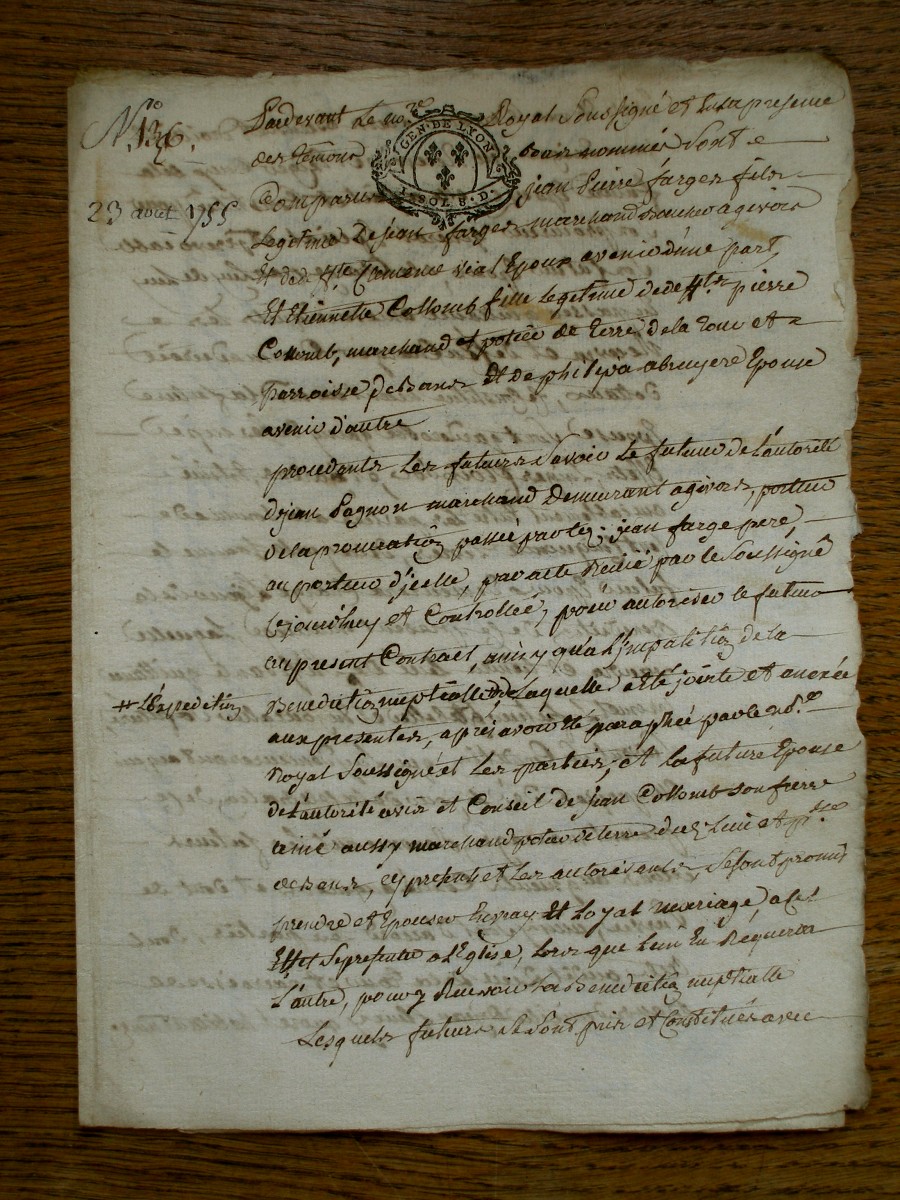 N.ro 136.
23 août 1755
Pardevant Le no.re Royal Soussigné et En la presence
GEN. DE LYON
1. SOL 8. D.
des temoins bas nommés Sont
Comparus jean Pierre farges fils
Legitime de jean farges marchand a givors
Et de d. h.te Clemence vial Epoux avenir d'une part,
Et Etiennette Collomb fille Legitime de de ff.ts pierre
Collomb, marchand et potier de terre de la Tour et
parroisse de Bans Et de philipa bruyere Epouse
avenir d'autre
procedants Les futurs Savoir Le futur de L'autorité
de jean Pagnon marchand Demeurant a givors, porteur
de la procuration passée par led. jean farge pere,
au porteur d'jcelle, par acte Reçu par le Soussigné
Cejourdhuy et Controllée, pour autoriser le futur
au present Contract, ainsy qu'a L'jmpartition de la
# L'Expedition
Benediction nuptialle # de Laquelle a été jointe et anexée
aux presentes, apres avoir été paraphée par le no.re
Royal Soussigné et Les parties, et la future Epouse
de L'autorité avis et Conseil de jean Collomb son frere
ainé aussy marchand potier de terre dud. Lieu et p.sse
de Bans, cy present et Les autorisants Se sont promis
prendre et Epouser En vray Et Loyal mariage, a cet
Effet Se presenter a L'Eglise, Lors que L'un En Requerra
L'autre, pour y Recevoir La Benediction nuptialle
Lesquels futurs Se Sont pris et Constitués avec